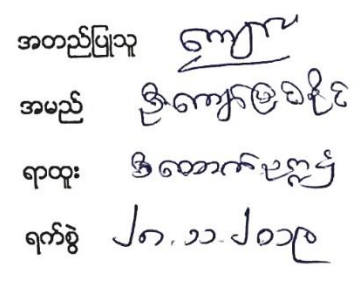 အတည်ပြုသူ
အမည် ဦးကျော်မြင့်နိုင်
ရာထူး ဒီထောက်ညွှန်
ရက်စွဲ ၂၈.၁၁.၂၀၁၉